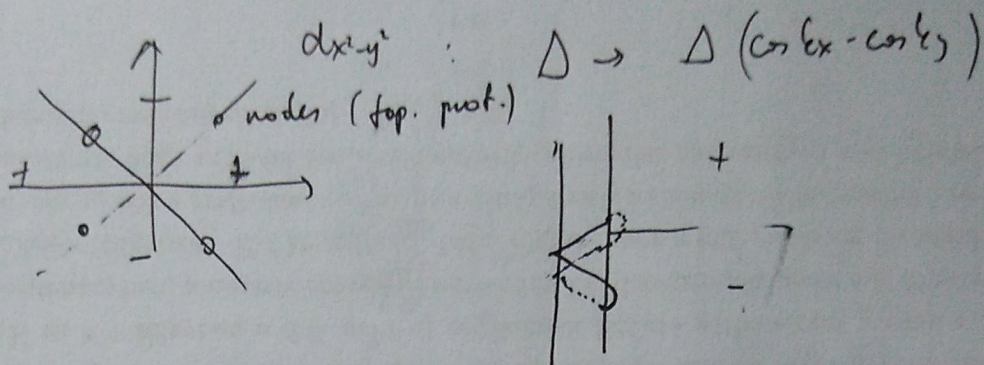 dx²-y² : Δ → Δ (cos kx - cos ky)
nodes (top. prot.)
+ + +
- - -